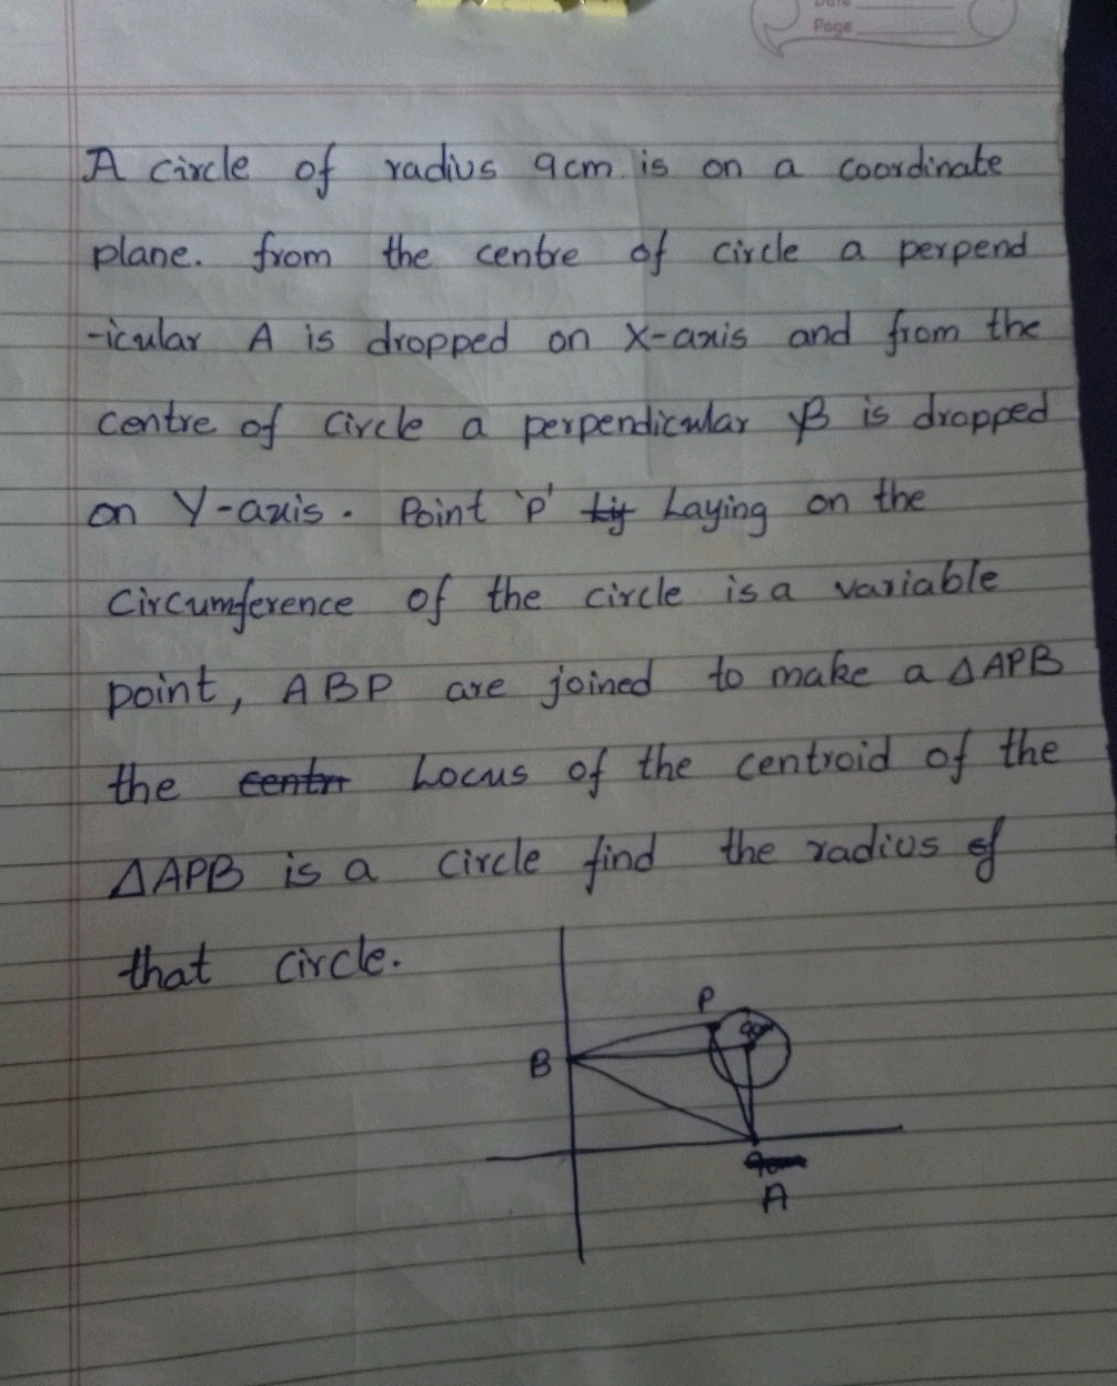 Date
Page
A circle of radius 9cm is on a coordinate
plane. from the centre of circle a perpend
-icular A is dropped on X-axis and from the
centre of circle a perpendicular B is dropped
on Y-axis. Point 'P' Laying on the
circumference of the circle is a variable
point, ABP are joined to make a ΔAPB
the Locus of the centroid of the
ΔAPB is a circle find the radius of
that circle.
P
B
A